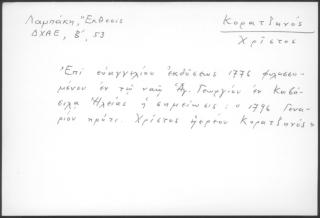 Λαμπάκη, "Έκθεσις
ΔΧΑΕ, Β', 53
Κορατζανός
Χρῖστος
"Ἐπί εὐαγγελίου ἐκδόσεως 1776 φυλασσο-
μένου ἐν τῷ ναῷ Ἁγ. Γεωργίου ἐν Καβά-
σιλα Ἠλείας ἡ σημείωσις: ο 1796 Γενα-
ρίου πρότι. Χρίστος ἱερέου Κορατζανός"